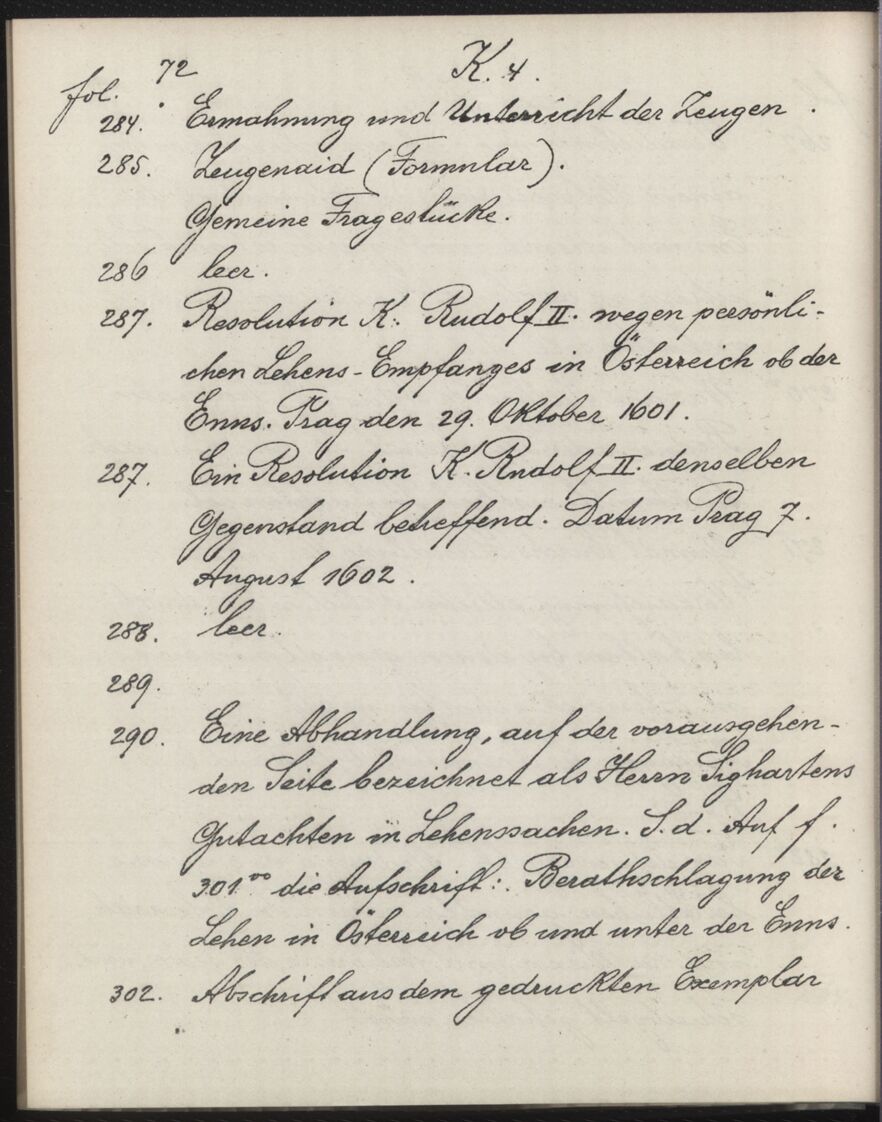 72 K. 4.
fol.
284. Ermahnung und Unterricht der Zeugen.
285. Zeugenaid (Formular).
Gemeine Fragestücke.
286 leer.
287. Resolution K. Rudolf II. wegen persönli-
chen Lehens-Empfanges in Österreich ob der
Enns. Prag den 29. Oktober 1601.
287. Ein Resolution K. Rudolf II. denselben
Gegenstand betreffend. Datum Prag 7.
August 1602.
288. leer.
289.
290. Eine Abhandlung, auf der vorausgehen-
den Seite bezeichnet als Herrn Sighartens
Gutachten in Lehenssachen. S. d. Auf f.
301.vo die Aufschrift: Berathschlagung der
Lehen in Österreich ob und unter der Enns.
302. Abschrift aus dem gedruckten Exemplar